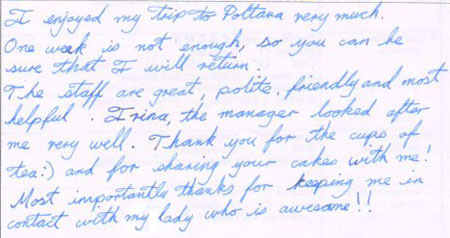 I enjoyed my trip to Poltava very much.
One week is not enough, so you can be
sure that I will return.
The staff are great, polite, friendly and most
helpful. Irina, the manager looked after
me very well. Thank you for the cups of
tea:) and for sharing your cakes with me!
Most importantly thanks for keeping me in
contact with my lady who is awesome!!